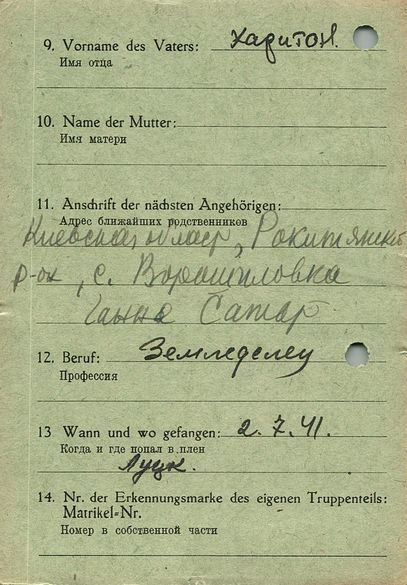 9. Vorname des Vaters: Харитон.
Имя отца
10. Name der Mutter:
Имя матери
11. Anschrift der nächsten Angehörigen:
Адрес ближайших родственников
Киевская област, Рокитянский
р-он, с. Ворошиловка
Ганна Сатар
12. Beruf: Земледелец
Профессия
13 Wann und wo gefangen: 2. 7. 41.
Когда и где попал в плен
Луцк.
14. Nr. der Erkennungsmarke des eigenen Truppenteils:
Matrikel-Nr.
Номер в собственной части